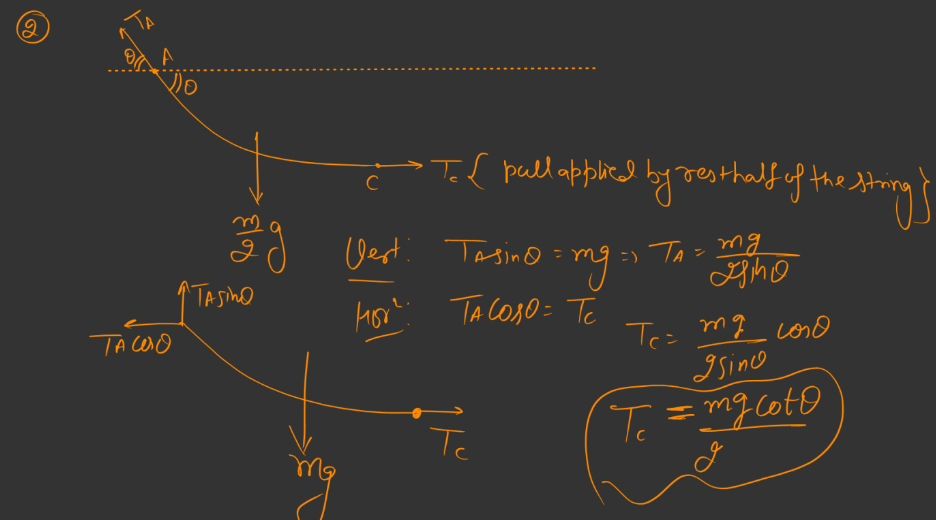 ②
T_A
θ A
θ
C T_c { pull applied by rest half of the string }
m/2 g
Vert: T_A sinθ = mg => T_A = mg/2sinθ
Hor²: T_A cosθ = T_c
T_A sinθ
T_A cosθ
T_c = mg/2sinθ cosθ
T_c = mg cotθ/2
T_c
mg